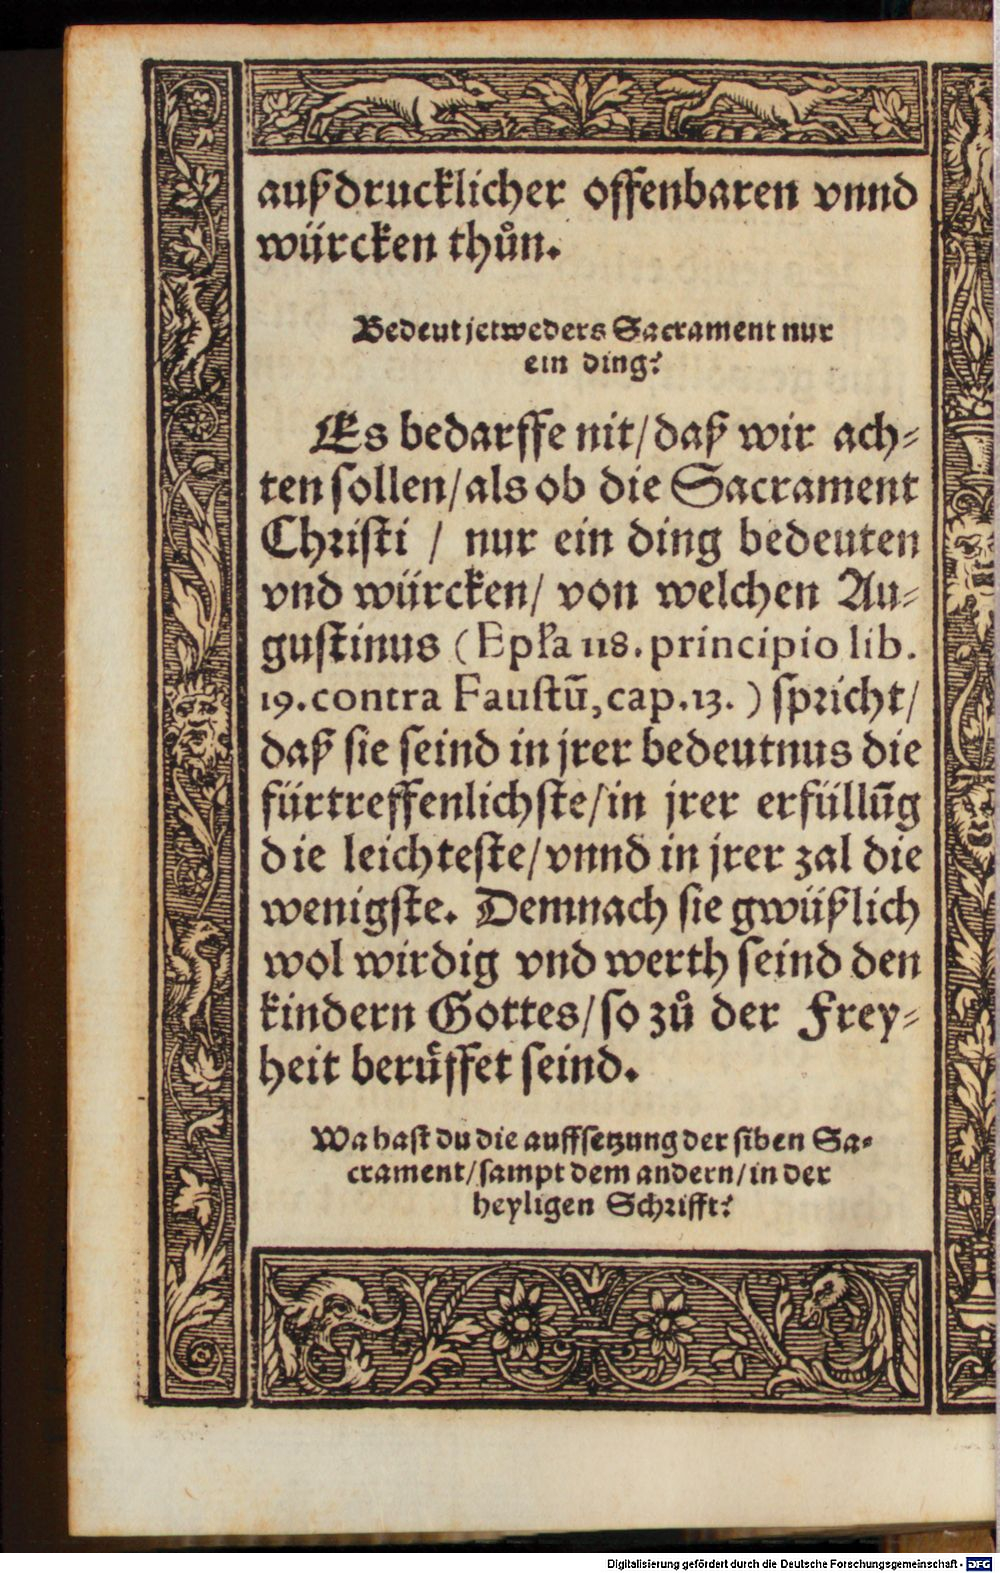 außdrucklicher offenbaren vnnd
würcken thůn.
Bedeut jetweders Sacrament nur
ein ding?
Es bedarffe nit/ daß wir ach-
ten sollen/ als ob die Sacrament
Christi / nur ein ding bedeuten
vnd würcken/ von welchen Au-
gustinus (Epła 118. principio lib.
19. contra Faustū, cap. 13. ) spricht/
daß sie seind in jrer bedeutnus die
fürtreffenlichste/ in jrer erfüllūg
die leichteste/ vnnd in jrer zal die
wenigste. Demnach sie gwüßlich
wol wirdig vnd werth seind den
kindern Gottes/ so zů der Frey-
heit berůffet seind.
Wa hast du die auffsetzung der siben Sa-
crament/ sampt dem andern/ in der
heyligen Schrifft?
Digitalisierung gefördert durch die Deutsche Forschungsgemeinschaft - DFG